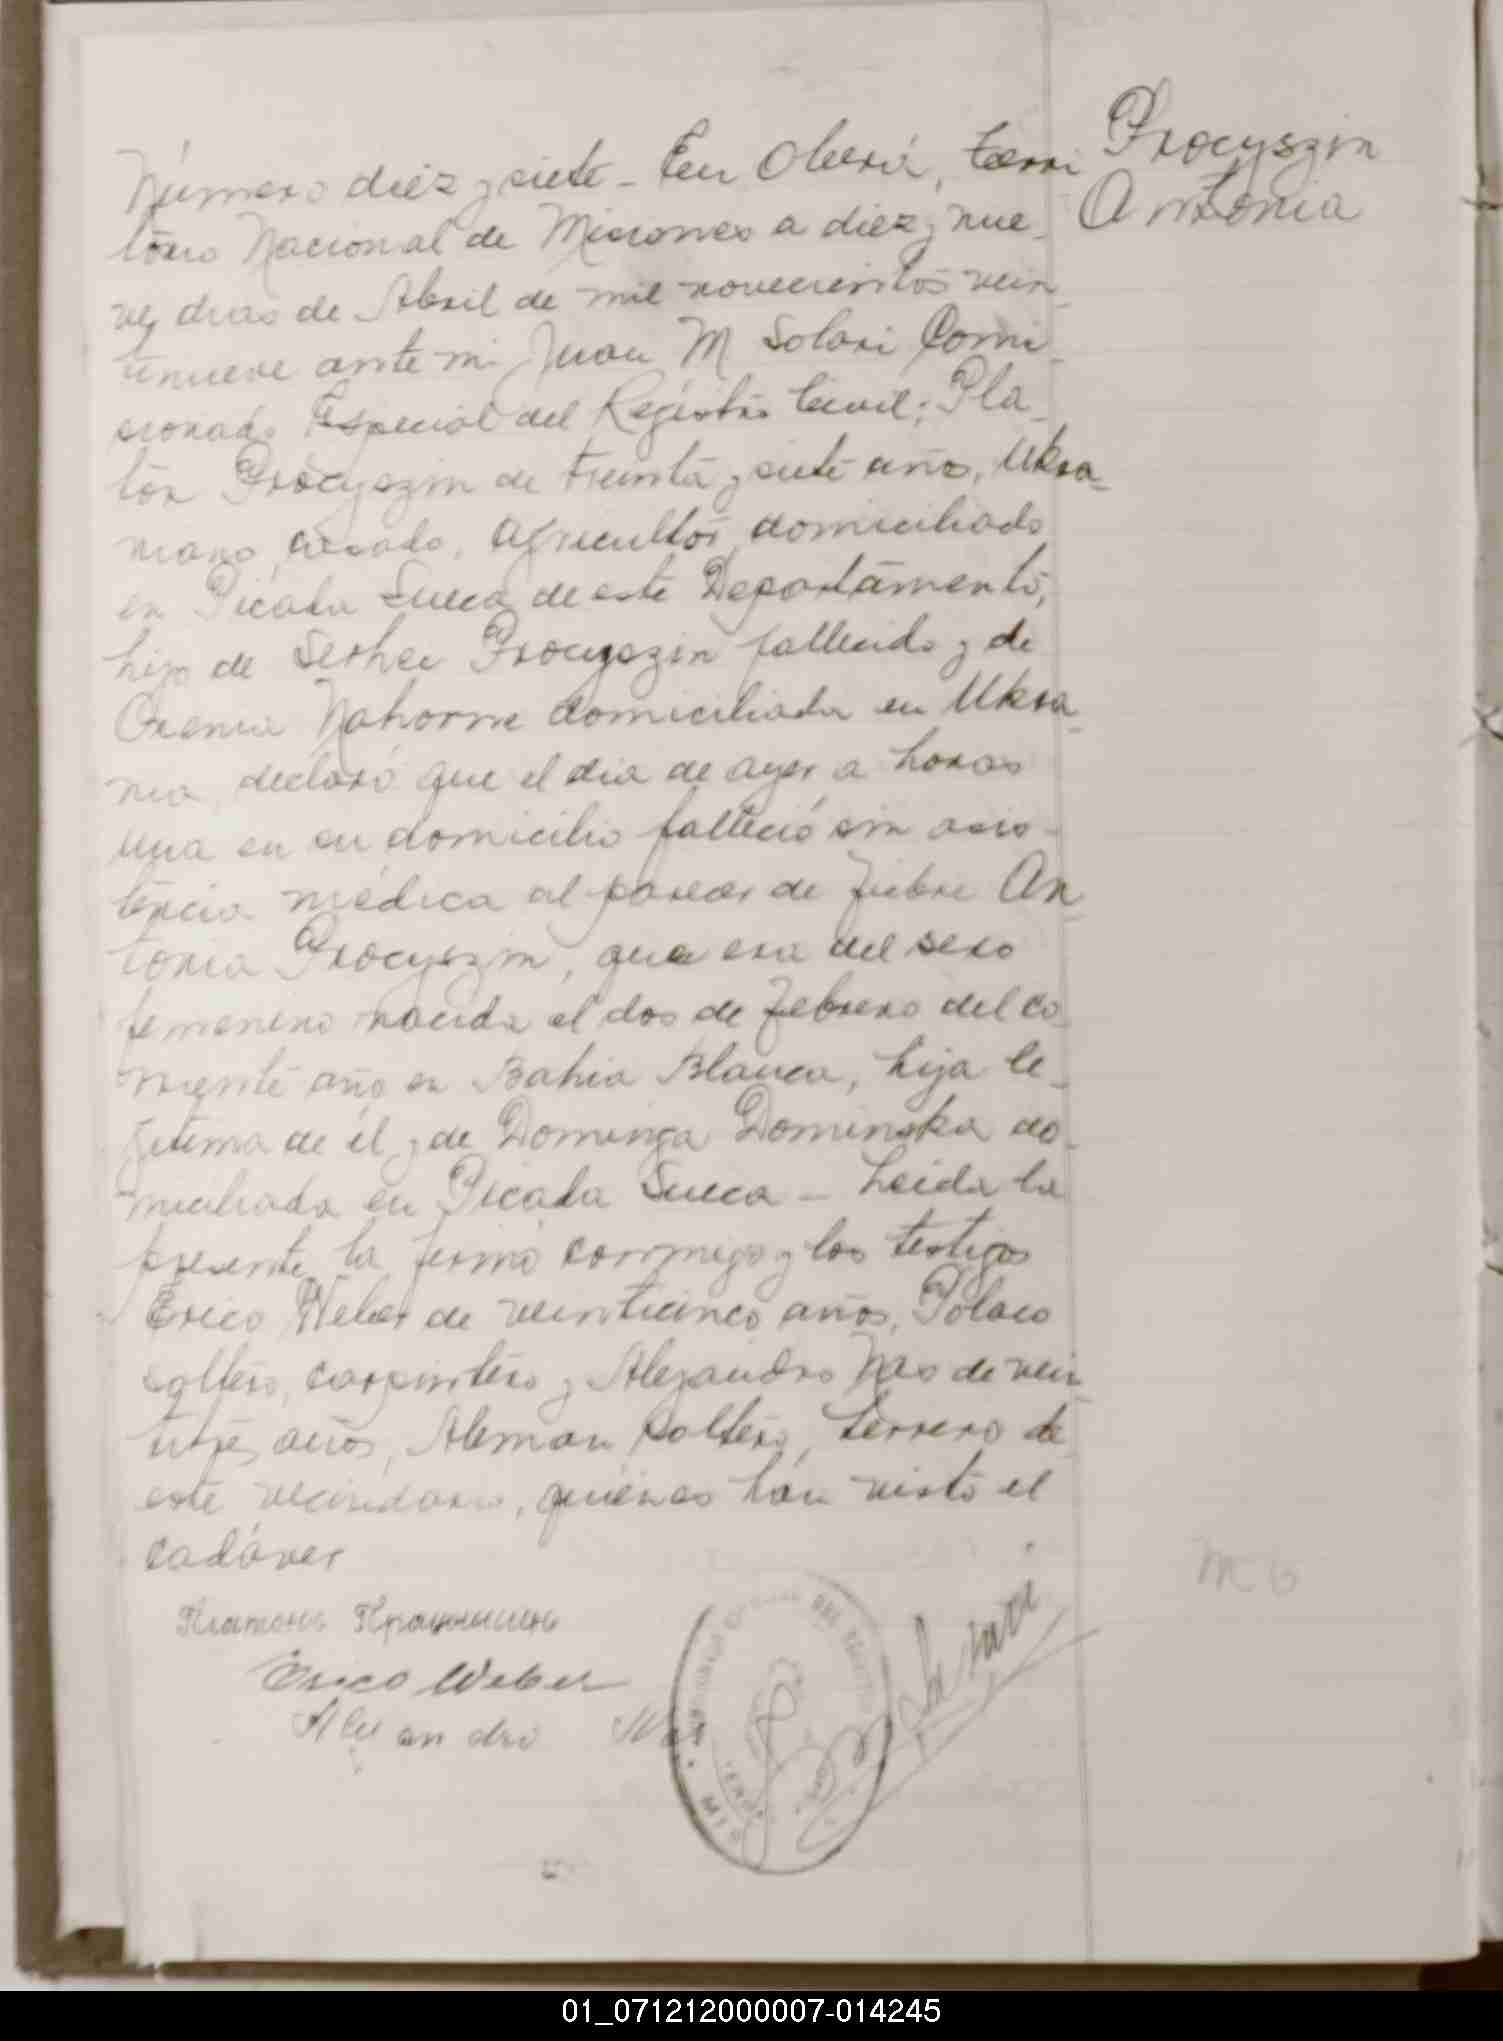 Procyszin
Antonia
Número diez y siete - En Oberá, terri
torio Nacional de Misiones a diez y nue-
ve dias de Abril de mil novecientos vein-
tinueve ante mi Juan M Solari Comi-
sionado Especial del Registro Civil; Pla-
tón Procyszin de treinta y siete años, Ukra-
niano, casado, agricultor, domiciliado
en Picada Sueca de este Departamento,
hijo de Serhei Procyszin fallecido y de
domiciliada en Ukra-
nia, declaró que el dia de ayer a horas
una en su domicilio falleció sin asis-
tencia médica al parecer de fiebre An-
tonia Procyszin, que era del sexo
femenino nacida el dos de Febrero del co-
rriente año en Bahia Blanca, hija le-
gitima de él y de Dominga Dominska do-
miciliada en Picada Sueca - Leida la
presente la firmó conmigo y los testigos
Erico Weber de veinticinco años, Polaco
soltero, carpintero y Alejandro de vein-
titres años, Aleman soltero, herrero de
este vecindario, quienes han visto el
cadáver
Erico Weber
01_071212000007-014245